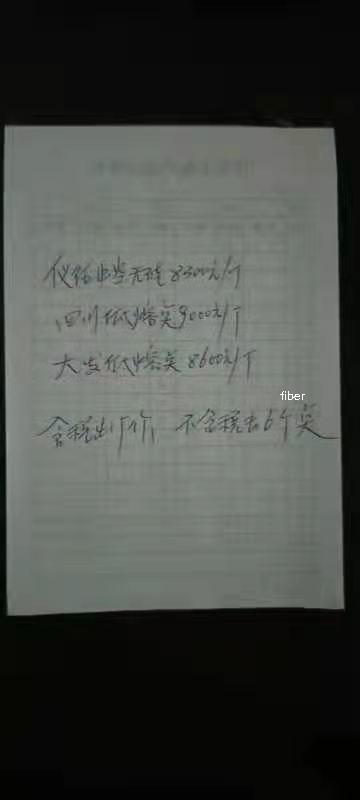 仪征中空无硅8300元/T
四川低熔类9000元/T
大发低熔类8600元/T
fiber
含税出厂价 不含税去6个点